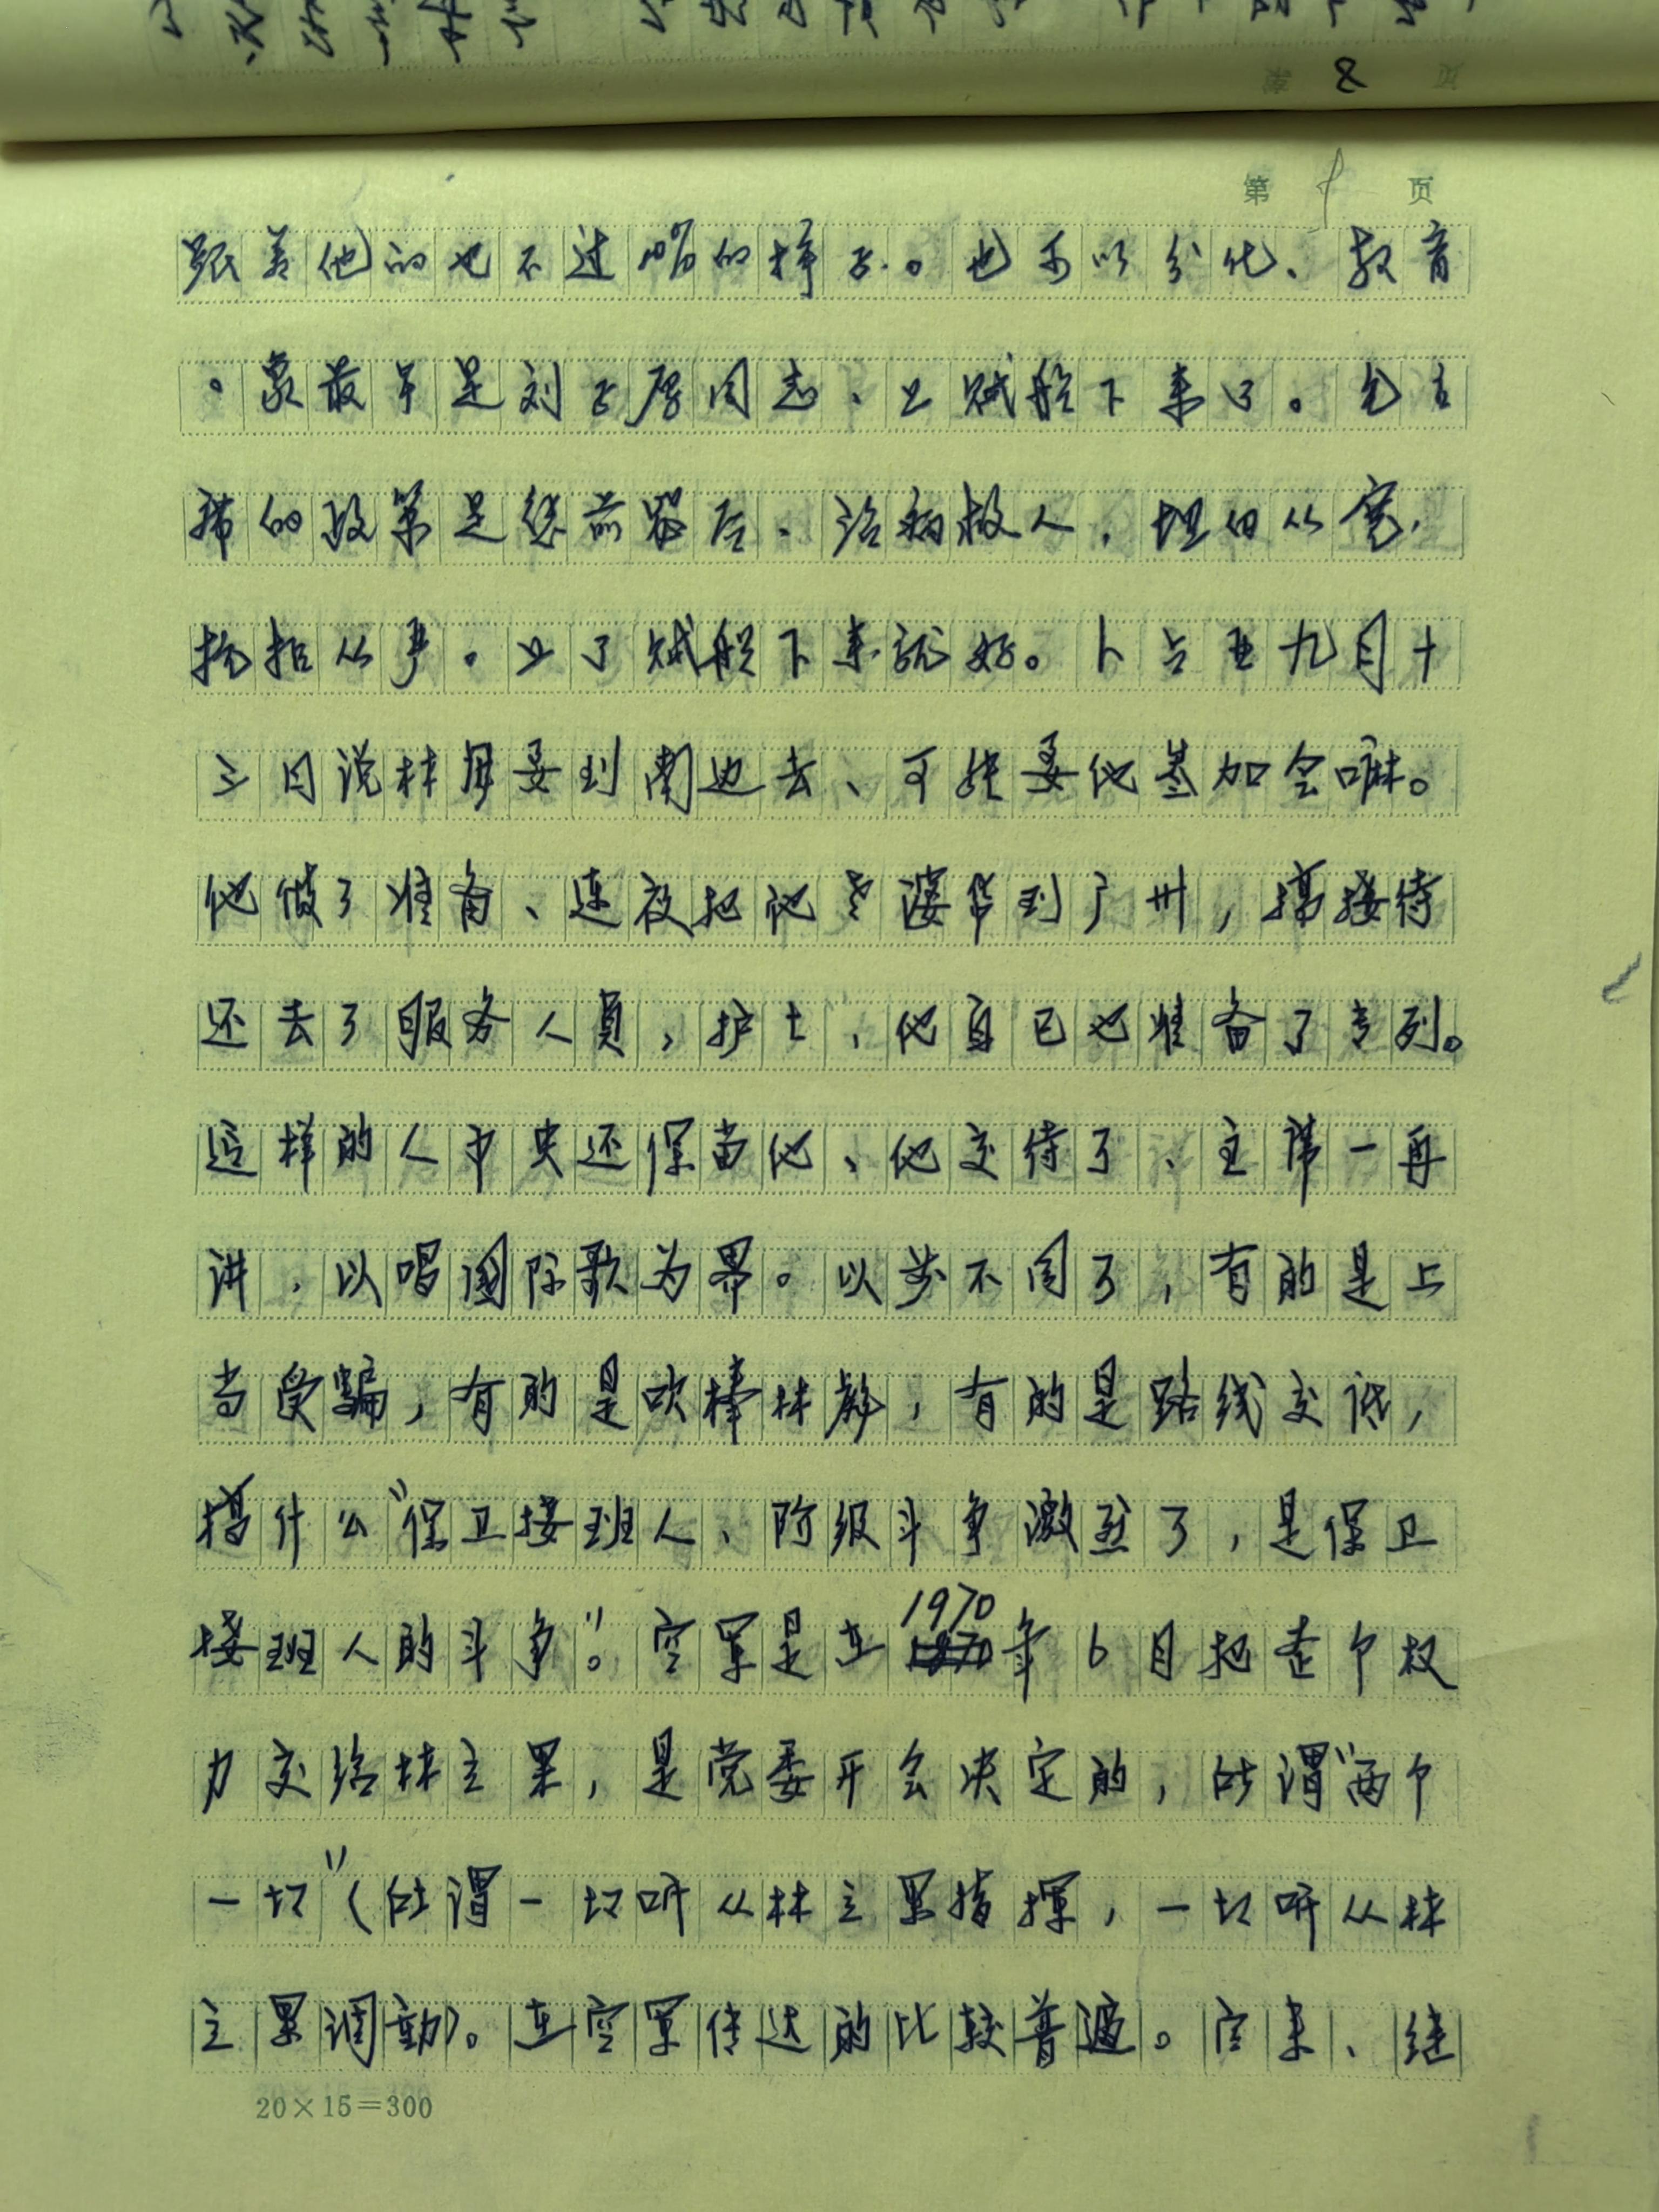 8
第 9 页
跟着他的也不过咱的择子。也可以分化、教育
。象最早是刘子厚同志、上贼船下来了。毛主
席的政策是惩前毖后、治病救人,坦白从宽,
抗拒从严。上了贼船下来就好。卜占亚九月十
三日说林要到南边去、可能要他参加会嘛。
他做了准备、连夜把他老婆带到广州,搞接待
还去了服务人员,护士,他自己也准备了专列。
这样的人中央还保留他、他交待了、主席一再
讲,以唱国际歌为界。以前不同了,有的是上
当受骗,有的是吹棒林彪,有的是路线交低,
搞什么“保卫接班人、阶级斗争激烈了,是保卫
接班人的斗争”。空军是在1970年6月把整个权
力交给林立果,是党委开会决定的,所谓“两个
一切”(所谓一切听从林立果指挥,一切听从林
立果调动)。在空军传达的比较普遍。后来、继
20×15=300